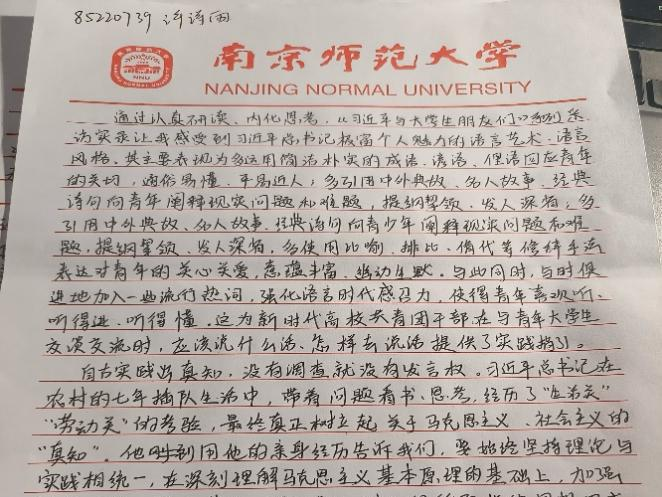 85220739 许诗雨
南京师范大学
NANJING NORMAL UNIVERSITY
NNU
通过认真研读、内化思考,《习近平与大学生朋友们》系列采
访实录让我感受到习近平总书记极富个人魅力的语言艺术、语言
风格。其主要表现为多运用简洁朴实的成语、谚语、俚语回应青年
的关切,通俗易懂、平易近人;多引用中外典故、名人故事、经典
诗句向青年阐释现实问题和难题,提纲挈领、发人深省;多
引用中外典故、名人故事、经典诗句向青少年阐释现实问题和难
题,提纲挈领、发人深省,多使用比喻、排比、借代等修辞手法
表达对青年的关心关爱,意蕴丰富、幽动生默。与此同时,与时俱
进地加入一些流行热词,强化语言时代感召力,使得青年喜欢听、
听得进、听得懂。这为新时代高校共青团干部在与青年大学生
交谈交流时,应该说什么话、怎样去说话提供了实践指引。
自古实践出真知,没有调查就没有发言权。习近平总书记在
农村的七年插队生活中,带着问题看书、思考,经历了“生活关”
“劳动关”的考验,最终真正树立起关于马克思主义、社会主义的
“真知”。他时刻用他的亲身经历告诉我们,要始终坚持理论与
实践相统一,在深刻理解马克思主义基本原理的基础上,加强